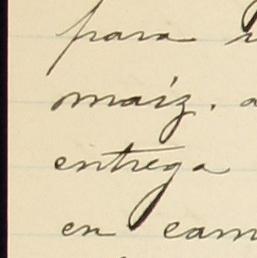 para
maíz.
entrega
en